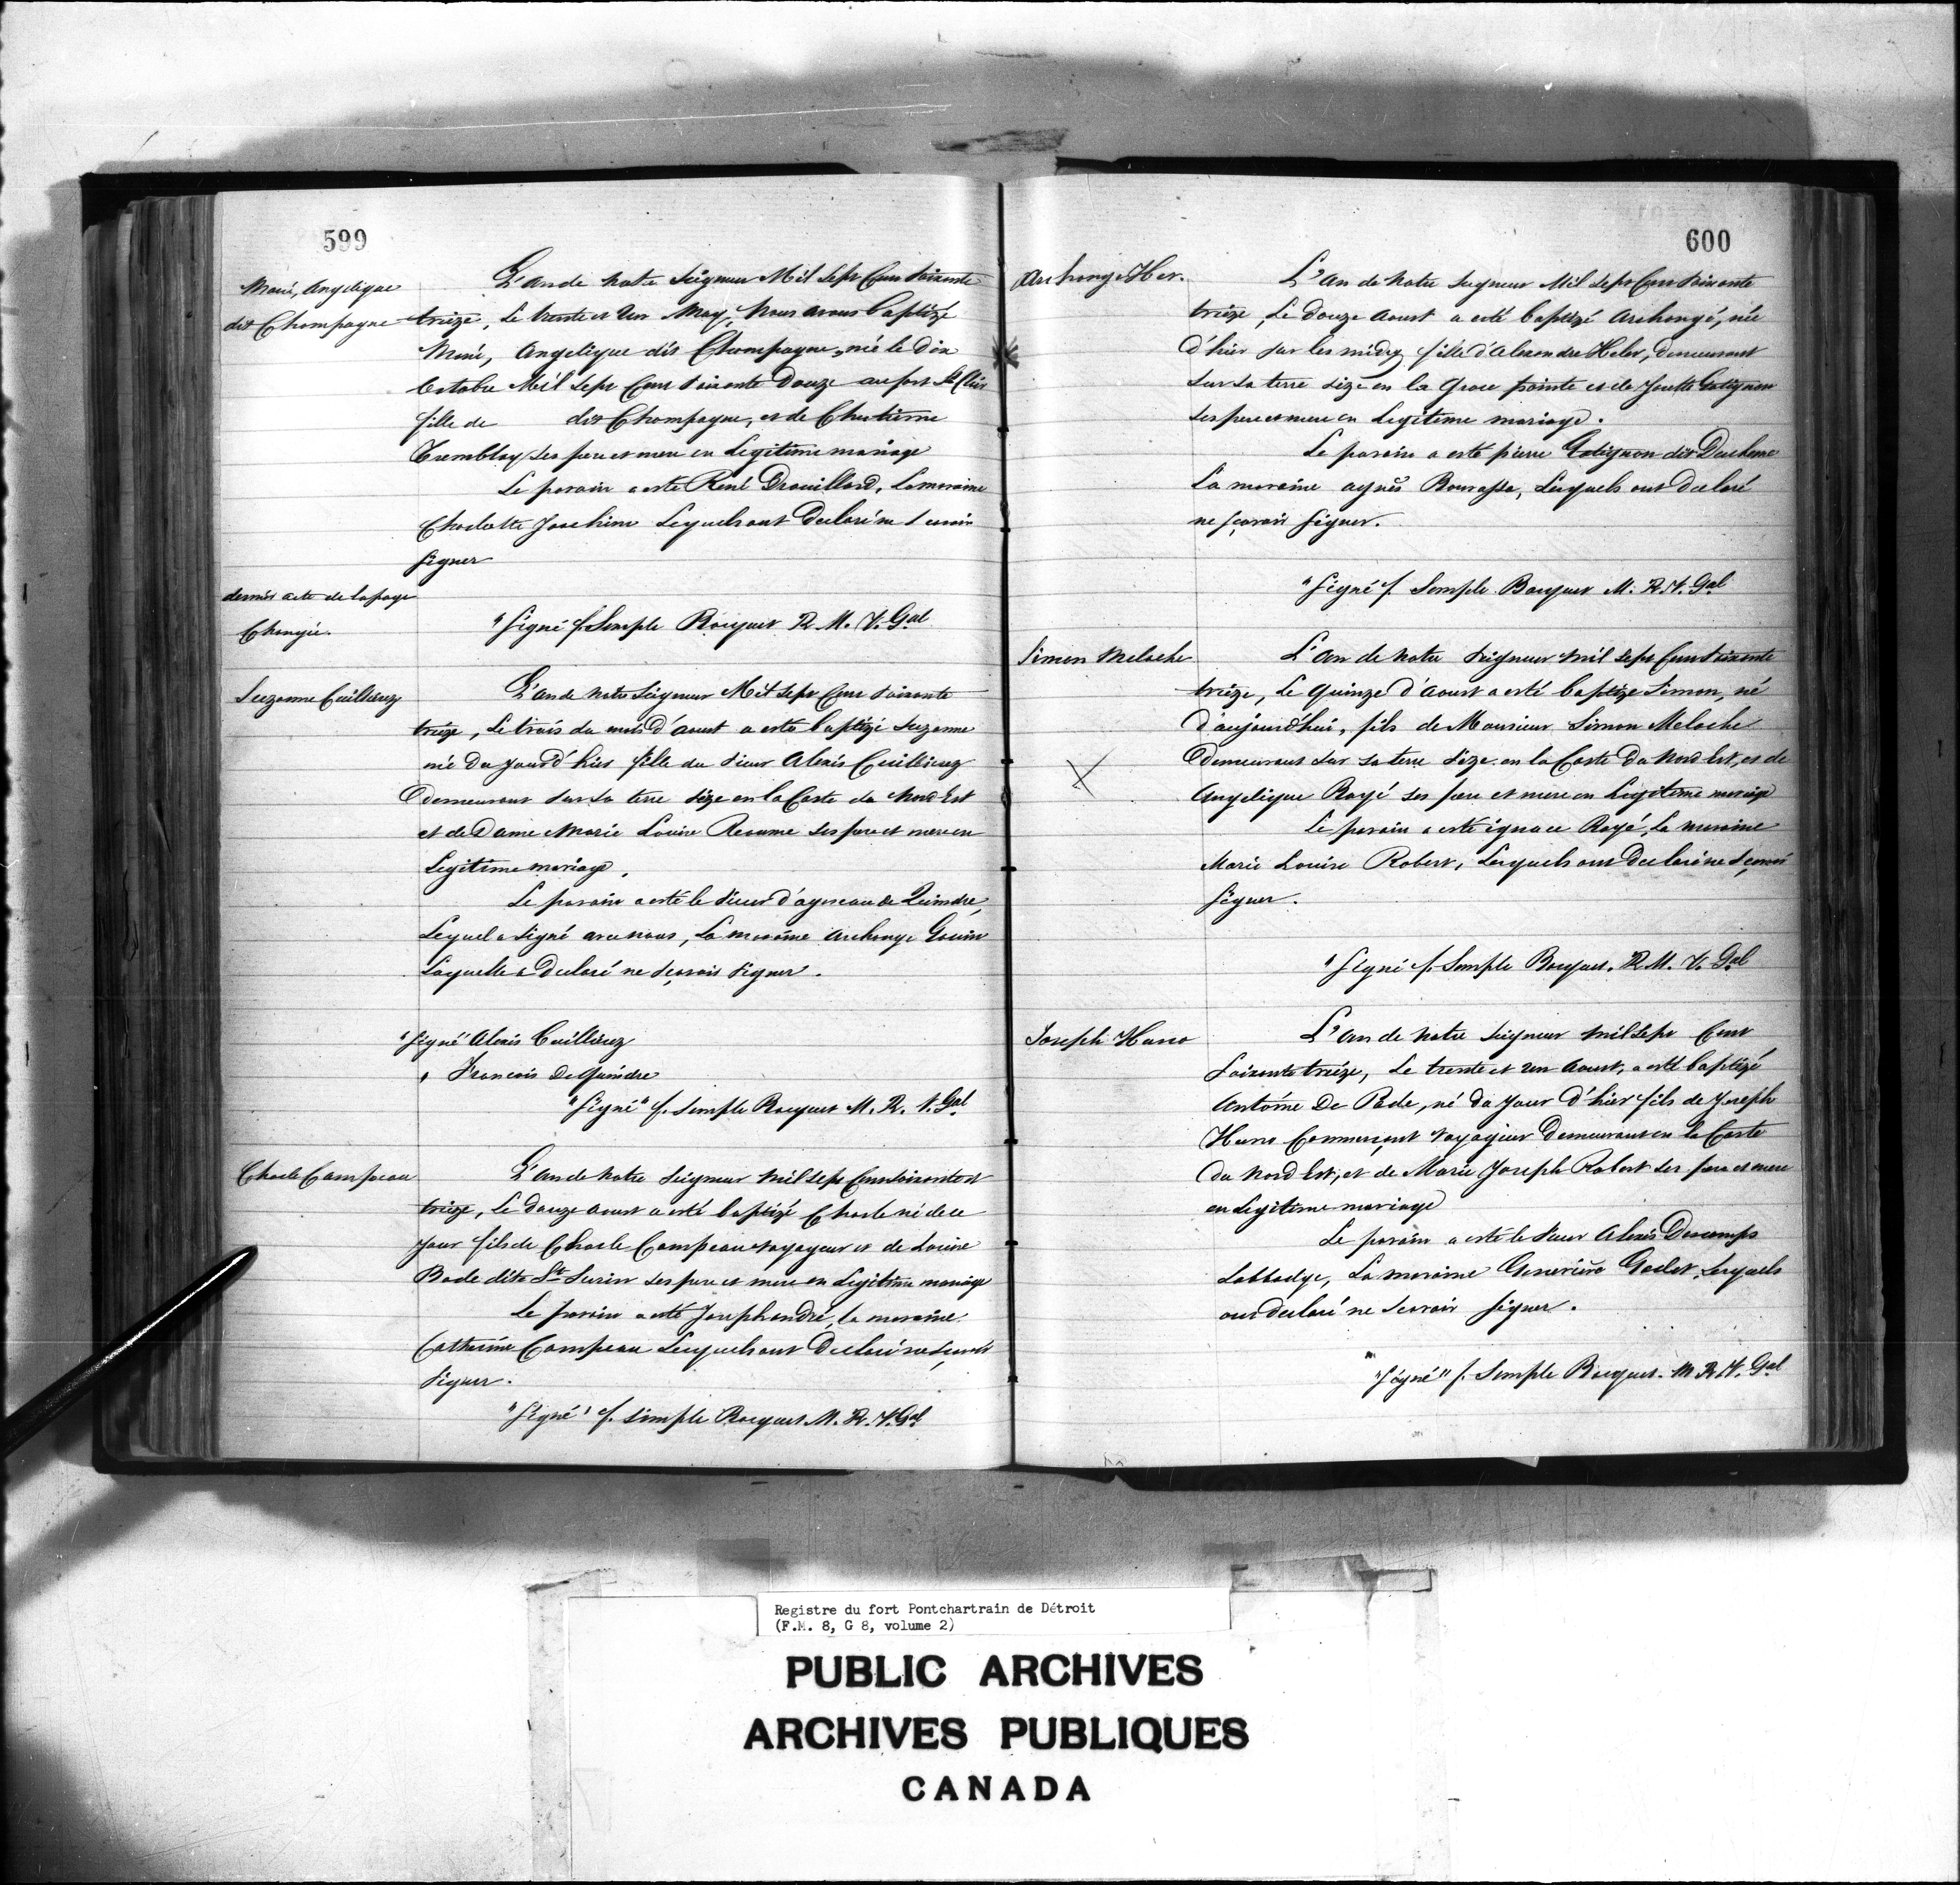 599
Marie, Angelique
dit Champagne
L'an de notre Seigneur Mil Sept Cent Soixante
treize, Le trente et Un May, Nous avons baptizé
Marie, Angelique dit Champagne, née le dix
Octobre Mil Sept Cent Soixante Douze au fort St Clair
fille de dit Champagne, et de
Tremblay ses pere et mere en Legitime mariage
Le parain a esté René Drouillard, La maraine
Charlotte Joachim Lesquels ont Declaré ne Scavoir
Signer
dernier acte de la page
Changée.
"Signé f. Simple Bocquet R. M. V. Gal
Suzanne Cuillerez
L'an de notre Seigneur Mil Sept Cent Soixante
treize, Le trois du mois d'aoust a esté baptizé Suzanne
née Du jour d'hier fille du Sieur Alexis Cuillerez
Demeurant Sur Sa terre Size en la Coste du Nord Est
et de Dame Marie Louise Reaume Ses pere et mere en
Legitime mariage.
Le parain a esté le Sieur d'agneau de Quindre,
Lequel a Signé avec nous, La maraine Archange Gouin
Laquelle a Declaré ne Scavoir Signer.
"Signé" Alexis Cuillerez
" Francois DeQuindre
"Signé" f. Simple Bocquet M. R. V. Gal
Charle Campeau
L'an de Notre Seigneur Mil Sept Cent Soixante et
treize, Le Douze aoust a esté baptizé Charle né de ce
Jour fils de Charle Campeau voyageur et de Louise
Bade dite St Surin ses pere et mere en Legitime mariage
Le parain a esté Joseph andré, la maraine
Catherine Campeau Lesquels ont Declaré ne Scavoir
Signer.
"Signé" f. Simple Bocquet M. R. V. Gal
600
Archange
L'an de Notre Seigneur Mil Sept Cent Soixante
treize, Le Douze aoust a esté baptizé Archangé, née
d'hier sur les midy fille d'Alexandre, Demeurant
Sur Sa terre size en la Grose pointe et de Gatignon
Ses pere et mere en Legitime mariage.
Le parain a esté pierre Gatignon dit Duchene
La maraine agnés Bourassa, Lesquels ont Declaré
ne Sçavoir Signer.
"Signé f. Simple Bocquet M. R. V. Gal
Simon Meloche
L'an de Notre Seigneur Mil Sept Cent Soixante
treize, Le Quinze d'aoust a esté baptize Simon, né
d'aujourd'hui, fils de Monsieur Simon Meloche
Demeurant Sur Sa terre Size en la Coste Du Nord Est, et de
Angelique Rayé Ses pere et mere en Legitime mariage
Le parain a esté ignace Rayé, La maraine
Marie Louise Robert, Lesquels ont Declaré ne Sçavoir
Signer.
"Signé f. Simple Bocquet. R. M. V. Gal
Joseph
L'an de notre Seigneur Mil Sept Cent
Soixante treize, Le trente et un Aoust, a esté baptizé
Antoine De Pade, né du Jour d'hier fils de Joseph
Commerçant voyageur Demeurant en la Coste
du Nord Est, et de Marie Joseph Robert Ses pere et mere
en Legitime mariage
Le parain a esté le Sieur Alexis Descomps
Labbadye, La maraine Genevieve Godet, Lesquels
ont declaré ne Scavoir Signer.
"Signé" f. Simple Bocquet. M. R. V. Gal
Registre du fort Pontchartrain de Détroit
(F.M. 8, G 8, volume 2)
PUBLIC ARCHIVES
ARCHIVES PUBLIQUES
CANADA